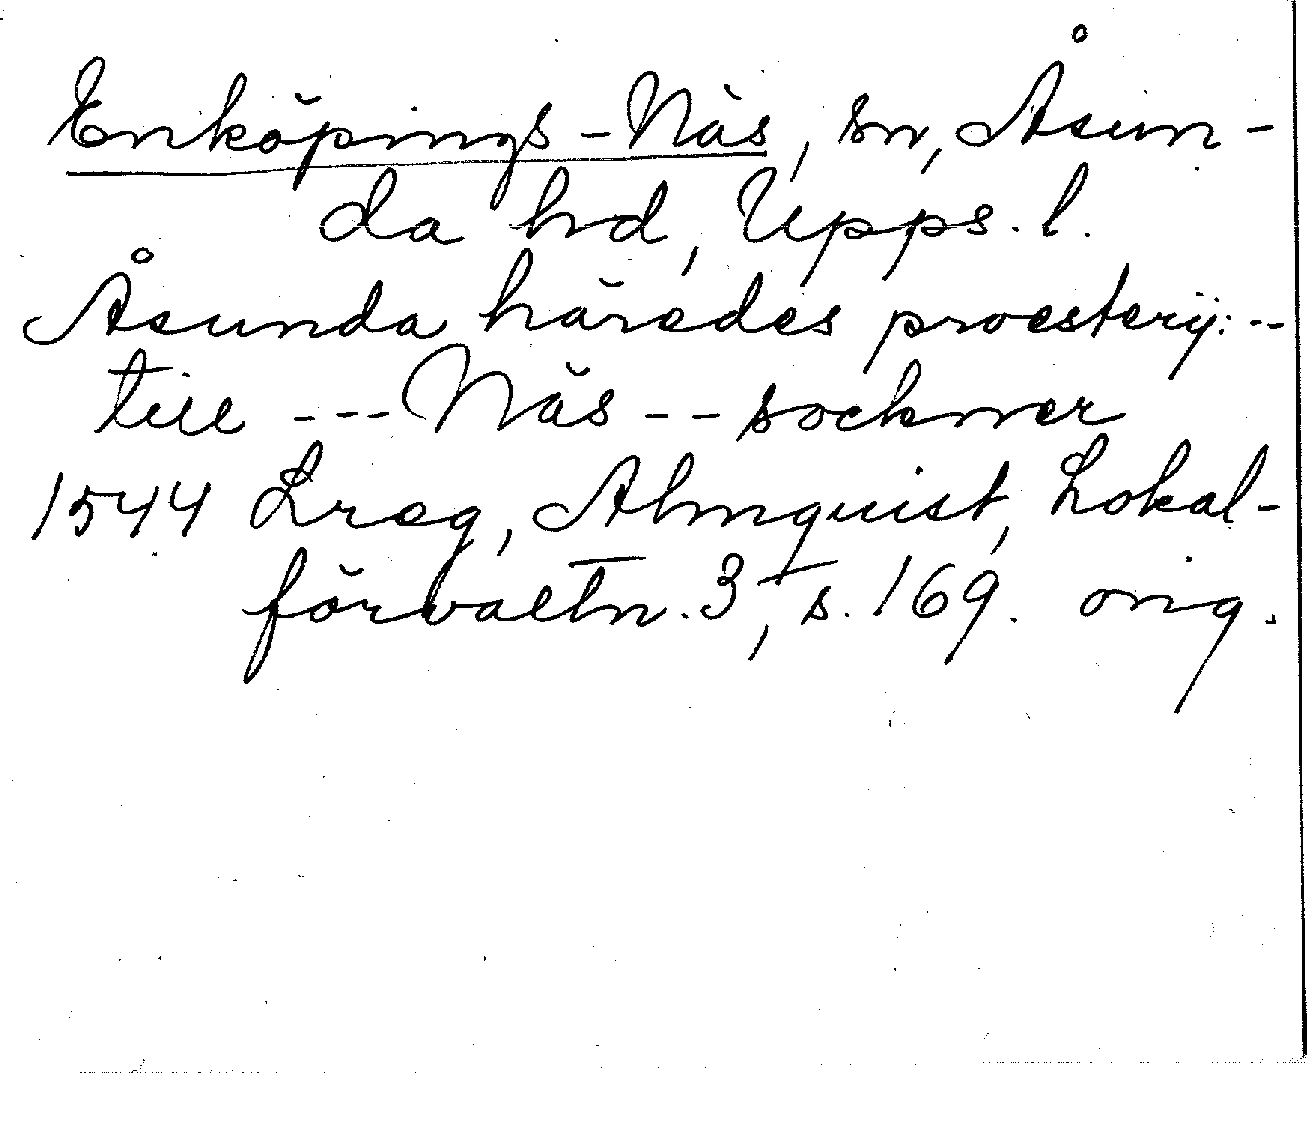 Enköpings-Näs, sn, Åsun-
da hd, Upps. l.
Åsunda häredes proesterij: --
till --- Näs -- sockner
1544 Lreg, Almquist, Lokal-
förvaltn. 3, s. 169. orig.